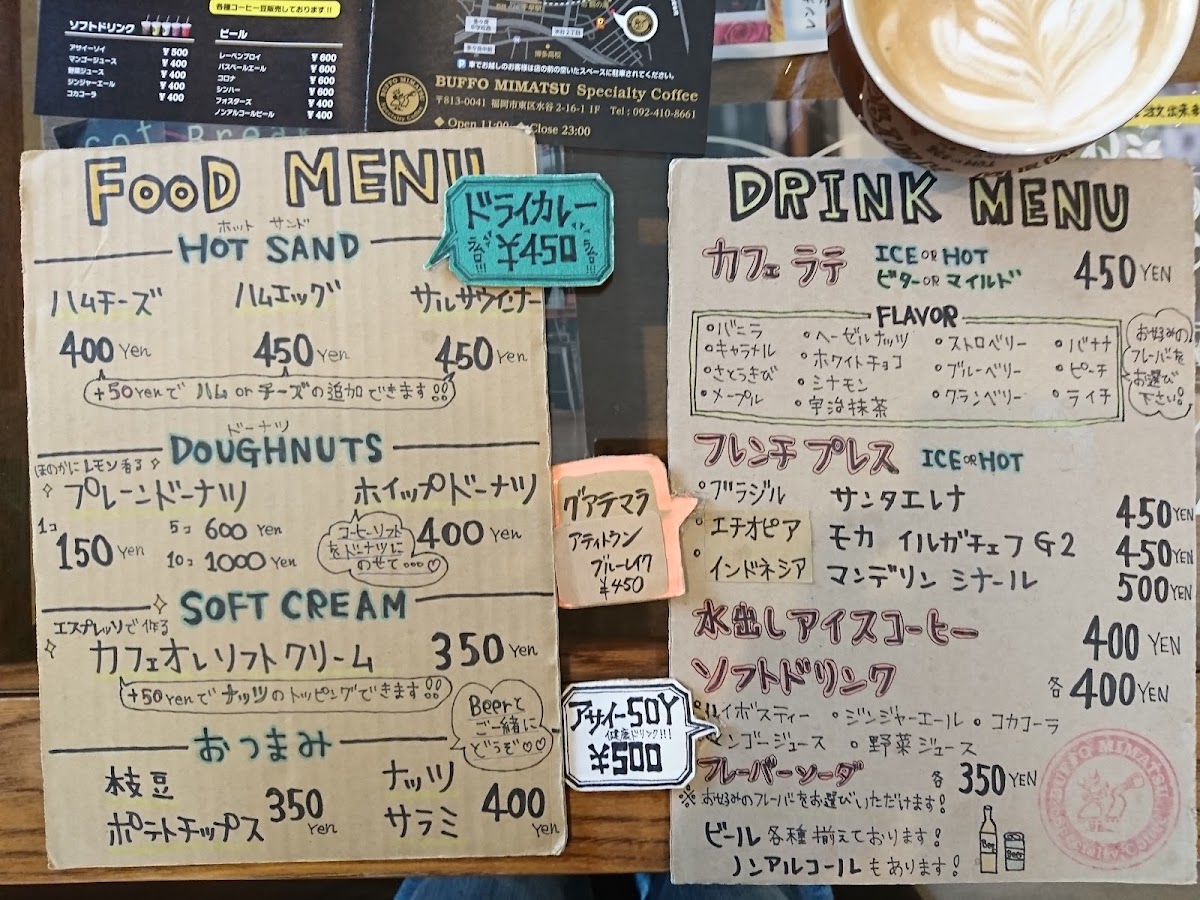 各種コーヒー豆販売しております!!
ソフトドリンク
アサイーソイ ¥500
マンゴージュース ¥400
野菜ジュース ¥400
ジンジャーエール ¥400
コカコーラ ¥400
ビール
レーベンブロイ ¥600
バスペールエール ¥600
コロナ ¥600
シンハー ¥600
フォスターズ ¥400
ノンアルコールビール ¥400
P 車でお越しのお客様は店の前の空いたスペースに駐車されてください。
BUFFO MIMATSU Specialty Coffee
〒813-0041 福岡市東区水谷 2-16-1 1F Tel : 092-410-8661
◆ Open 11:00 ◆ Close 23:00
FOOD MENU
ホット サンド
HOT SAND
ドライカレー
¥450
ハムチーズ ハムエッグ サルサウインナー
400 Yen 450 Yen 450 Yen
+50yenで ハム or チーズの追加できます!!
ドーナツ
DOUGHNUTS
ほのかにレモン香る
プレーンドーナツ ホイップドーナツ
1コ 150 Yen 5コ 600 Yen
10コ 1000 Yen
コーヒーソフト
をドーナツに
のせて…♡
400 Yen
SOFT CREAM
エスプレッソで作る
カフェオレソフトクリーム 350 Yen
+50yenで ナッツのトッピングできます!!
おつまみ
Beerと
ご一緒に
どうぞ♡♡
枝豆
ポテトチップス 350 Yen
ナッツ
サラミ 400 Yen
グアテマラ
アティトラン
ブルーレイク
¥450
アサイーSOY
健康ドリンク!!!
¥500
DRINK MENU
カフェラテ ICE OR HOT
ビター OR マイルド 450 YEN
FLAVOR
バニラ ヘーゼルナッツ ストロベリー バナナ
キャラメル ホワイトチョコ ブルーベリー ピーチ
さとうきび シナモン クランベリー ライチ
メープル 宇治抹茶
お好みの
フレーバーを
お選び
下さい!
フレンチプレス ICE OR HOT
ブラジル サンタエレナ 450 YEN
エチオピア モカ イルガチェフ G2 450 YEN
インドネシア マンデリン シナール 500 YEN
水出しアイスコーヒー 400 YEN
ソフトドリンク 各 400 YEN
イボスティー ジンジャーエール コカコーラ
マンゴージュース 野菜ジュース
フレーバーソーダ 各 350 YEN
※お好みのフレーバーをお選びいただけます!
ビール 各種揃えております!
ノンアルコールもあります!
Beer
Beer
BUFFO MIMATSU